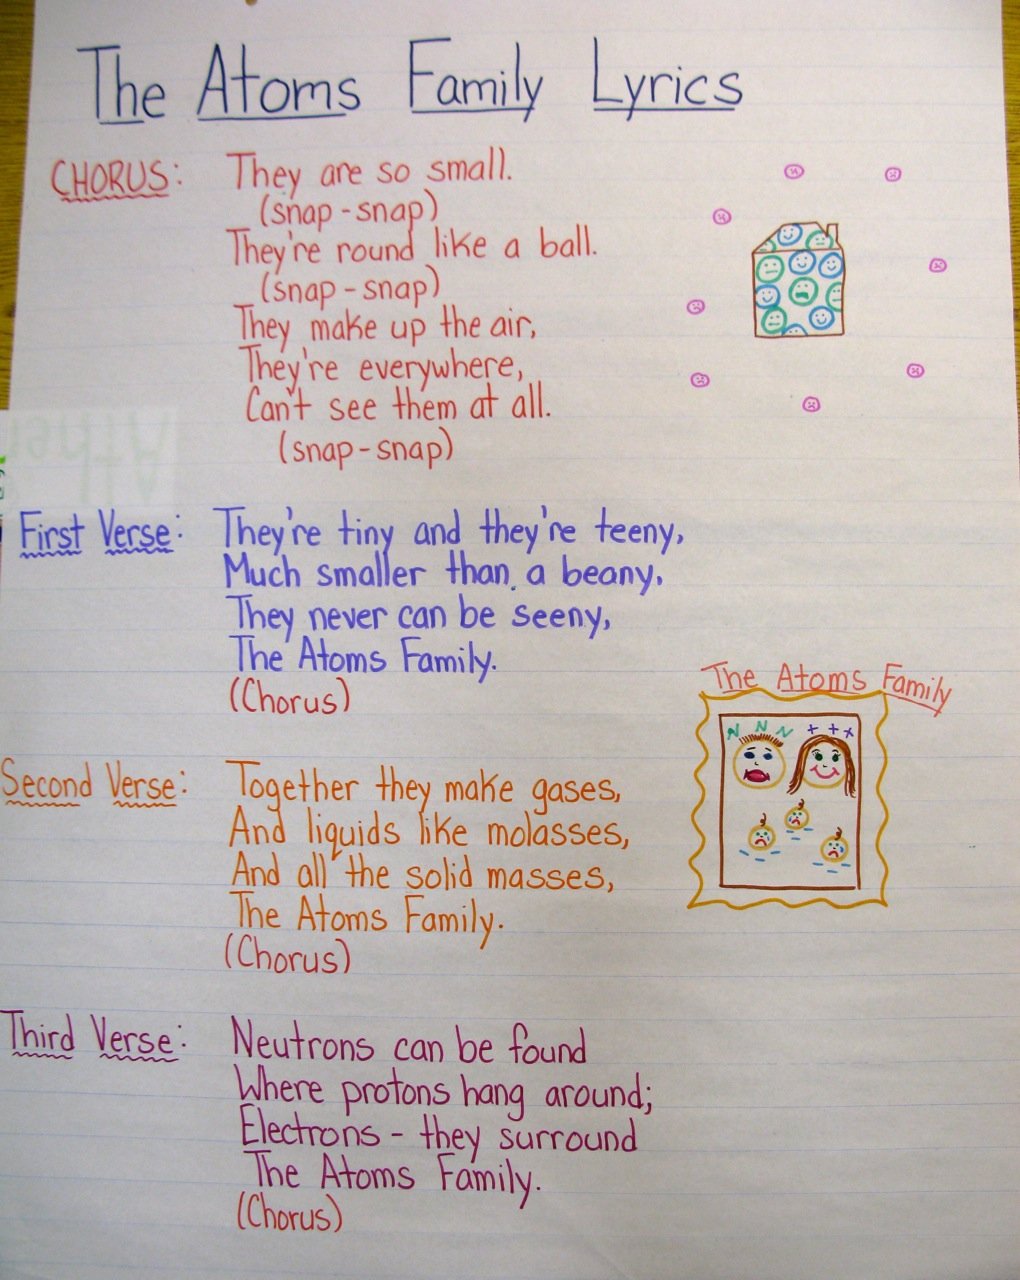 The Atoms Family Lyrics
CHORUS: They are so small.
(snap-snap)
They're round like a ball.
(snap-snap)
They make up the air,
They're everywhere,
Can't see them at all.
(snap-snap)
First Verse: They're tiny and they're teeny,
Much smaller than a beany.
They never can be seeny,
The Atoms Family.
(Chorus)
The Atoms Family
N N N + + +
Second Verse: Together they make gases,
And liquids like molasses,
And all the solid masses,
The Atoms Family.
(Chorus)
Third Verse: Neutrons can be found
Where protons hang around;
Electrons - they surround
The Atoms Family.
(Chorus)